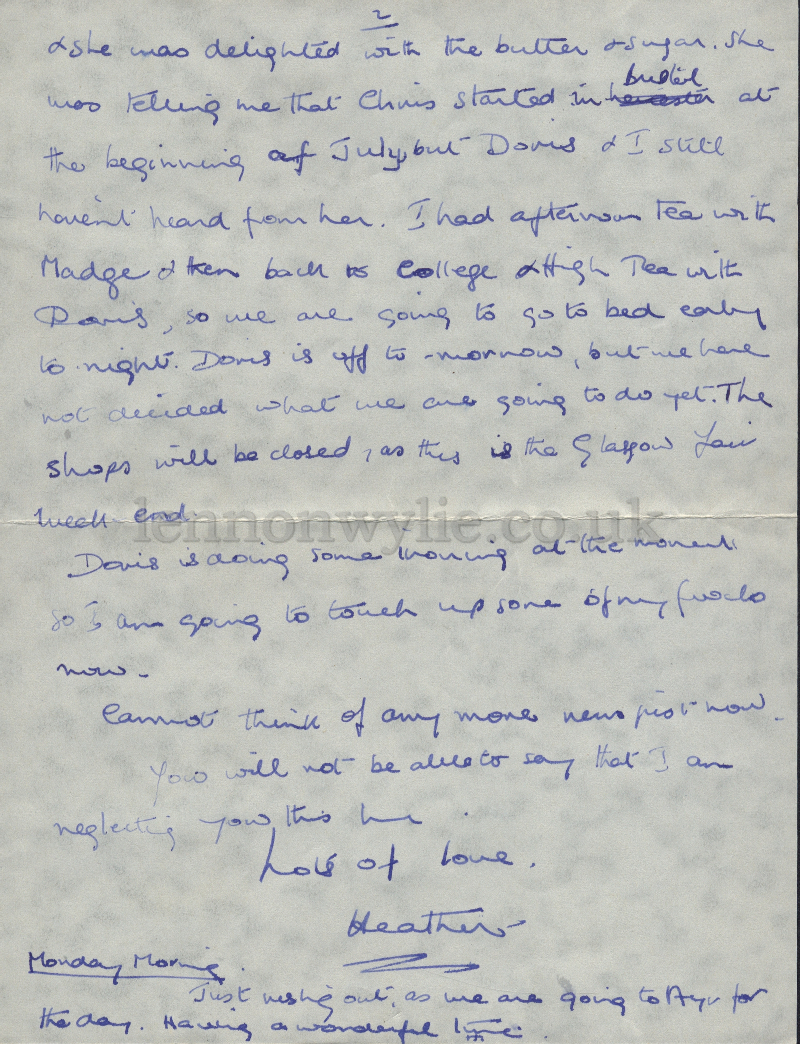 2
& she was delighted with the butter & sugar. She
was telling me that Chris started in Bristol at
the beginning of July, but Doris & I still
haven't heard from her. I had afternoon tea with
Madge & then back to College & High Tea with
Doris, so we are going to go to bed early
to-night. Doris is off to-morrow, but we have
not decided what we are going to do yet. The
shops will be closed, as this is the Glasgow Fair
week-end.
lennonwylie.co.uk
Doris is doing some ironing at the moment
so I am going to touch up some of my frocks
now.
Cannot think of any more news just now.
You will not be able to say that I am
neglecting you this time.
Lots of love.
Heather
Monday Morning.
Just rushing out, as we are going to Ayr for
the day. Having a wonderful time.